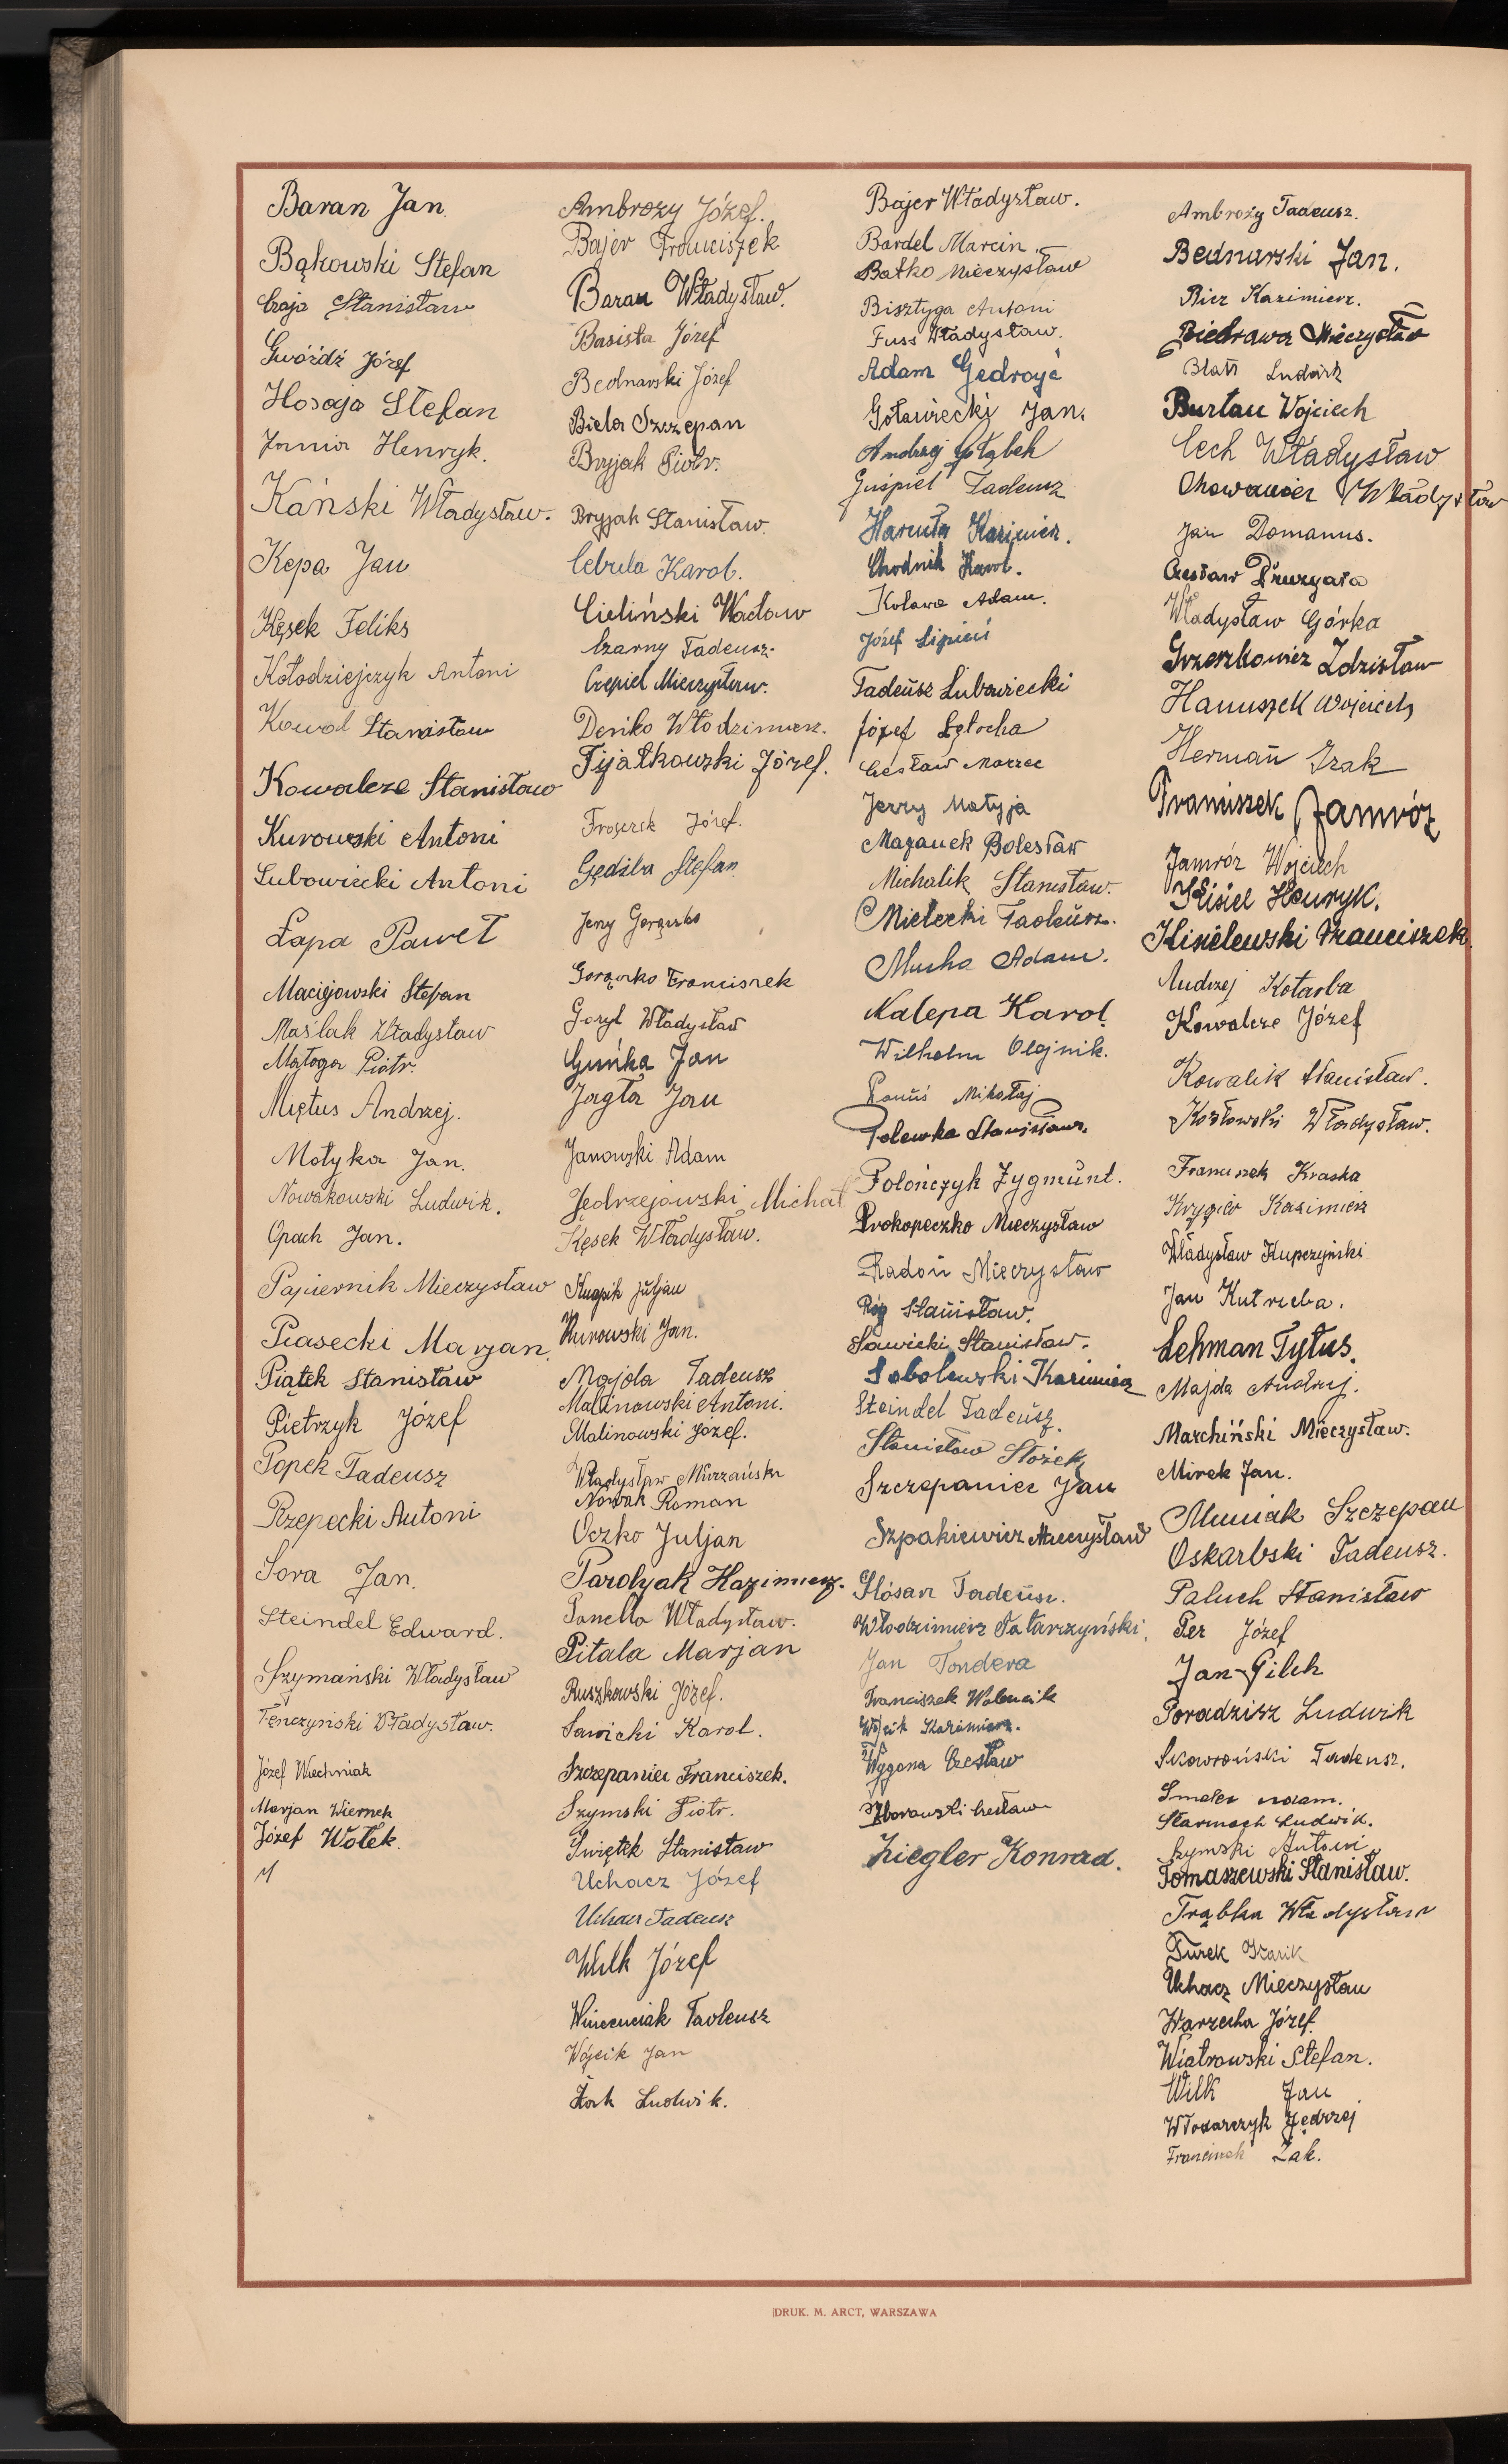 Baran Jan.
Bąkowski Stefan
Czaja Stanisław
Gwóźdź Józef
Hosaja Stefan
Janura Henryk.
Kański Władysław.
Kępa Jan
Kęsek Feliks
Kołodziejczyk Antoni
Kowal Stanisław
Kowalcze Stanisław
Kurowski Antoni
Lubowiecki Antoni
Łapa Paweł
Maciejowski Stefan
Maślak Władysław
Małoga Piotr.
Miętus Andrzej.
Motyka Jan.
Nowakowski Ludwik.
Opach Jan.
Papiernik Mieczysław
Piasecki Marjan.
Piątek Stanisław
Pietrzyk Józef
Popek Tadeusz
Rzepecki Antoni
Sora Jan.
Steindel Edward.
Szymański Władysław
Tęnczyński Władysław.
Józef Wiechniak
Marjan Wiernek
Józef Wołek.
Ambroży Józef.
Bajer Franciszek
Baran Władysław.
Basista Józef
Bednarski Józef
Biela Szczepan
Bryjak Piotr.
Bryjak Stanisław.
Cebula Karol.
Cieliński Wacław
Czarny Tadeusz.
Czepiel Mieczysław.
Deńko Włodzimierz.
Fijałkowski Józef.
Józef.
Gędźba Stefan
Jerzy Gorązko
Gorązko Franciszek
Goryl Władysław
Guńka Jan
Jagła Jan
Janowski Adam
Jędrzejowski Michał
Kęsek Władysław.
Knapik Juljan
Kurowski Jan.
Majda Tadeusz
Malinowski Antoni.
Malinowski Józef.
Władysław Murzański
Nowak Roman
Oczko Juljan
Parolyak Kazimierz.
Panella Władysław.
Pitala Marjan
Ruszkowski Józef.
Sawicki Karol.
Szczepaniec Franciszek.
Szymski Piotr.
Świętek Stanisław
Uchacz Józef
Uchacz Tadeusz
Wilk Józef
Wincenciak Tadeusz
Wójcik Jan
Żak Ludwik.
Bajer Władysław.
Bardel Marcin.
Batko Mieczysław
Bisztyga Antoni
Fuss Władysław.
Adam Gedroyć
Gołowiecki Jan.
Andrzej Gołąbek
Guśpiel Tadeusz
Haruta Kazimierz.
Chodnik Karol.
Kolawa Adam.
Józef Lipień
Tadeusz Lubowiecki
Józef Łętocha
Czesław Marzec
Jerzy Matyja
Mazanek Bolesław
Michalik Stanisław.
Mielecki Tadeusz.
Mucha Adam.
Nalepa Karol.
Wilhelm Olejnik.
Panuś Mikołaj
Polewka Stanisław.
Polończyk Zygmunt.
Prokopeczko Mieczysław
Radoń Mieczysław
Róg Stanisław.
Sawicki Stanisław.
Sobolewski Kazimierz
Steindel Tadeusz.
Stanisław Stożek
Szczepaniec Jan
Szpakiewicz Mieczysław
Ślósarz Tadeusz.
Włodzimierz Tatarzyński.
Jan Tondera
Franciszek Walencik
Wójcik Kazimierz.
Wygona Czesław
Zborowski Czesław
Ziegler Konrad.
Ambroży Tadeusz.
Bednarski Jan.
Bicz Kazimierz.
Biedrawa Mieczysław
Blatt Ludwik
Burtan Wojciech
Cech Władysław
Chowaniec Władysław
Jan Domanus.
Czesław Drużgała
Władysław Górka
Grzeszkowicz Zdzisław
Hanuszek Wojciech
Herman Izak
Franciszek Jamróz
Jamróz Wojciech
Kisiel Henryk.
Kisielewski Franciszek.
Andrzej Kotarba
Kowalcze Józef
Kowalik Stanisław.
Kozłowski Władysław.
Franciszek Kraska
Krzypior Kazimierz
Władysław Kupczyński
Jan Kutrzeba.
Lehman Tytus.
Majda Andrzej.
Marchiński Mieczysław.
Mirek Jan.
Muniak Szczepan
Oskarbski Tadeusz.
Paluch Stanisław
Per Józef
Jan Pilch
Poradzisz Ludwik
Skowroński Tadeusz.
Smalec Adam.
Starmach Ludwik.
Szymski Antoni
Tomaszewski Stanisław.
Trąbka Władysław
Turek Izarik
Uchacz Mieczysław
Warzecha Józef.
Wiatrowski Stefan.
Wilk Jan
Włodarczyk Jędrzej
Franciszek Żak.
DRUK. M. ARCT, WARSZAWA